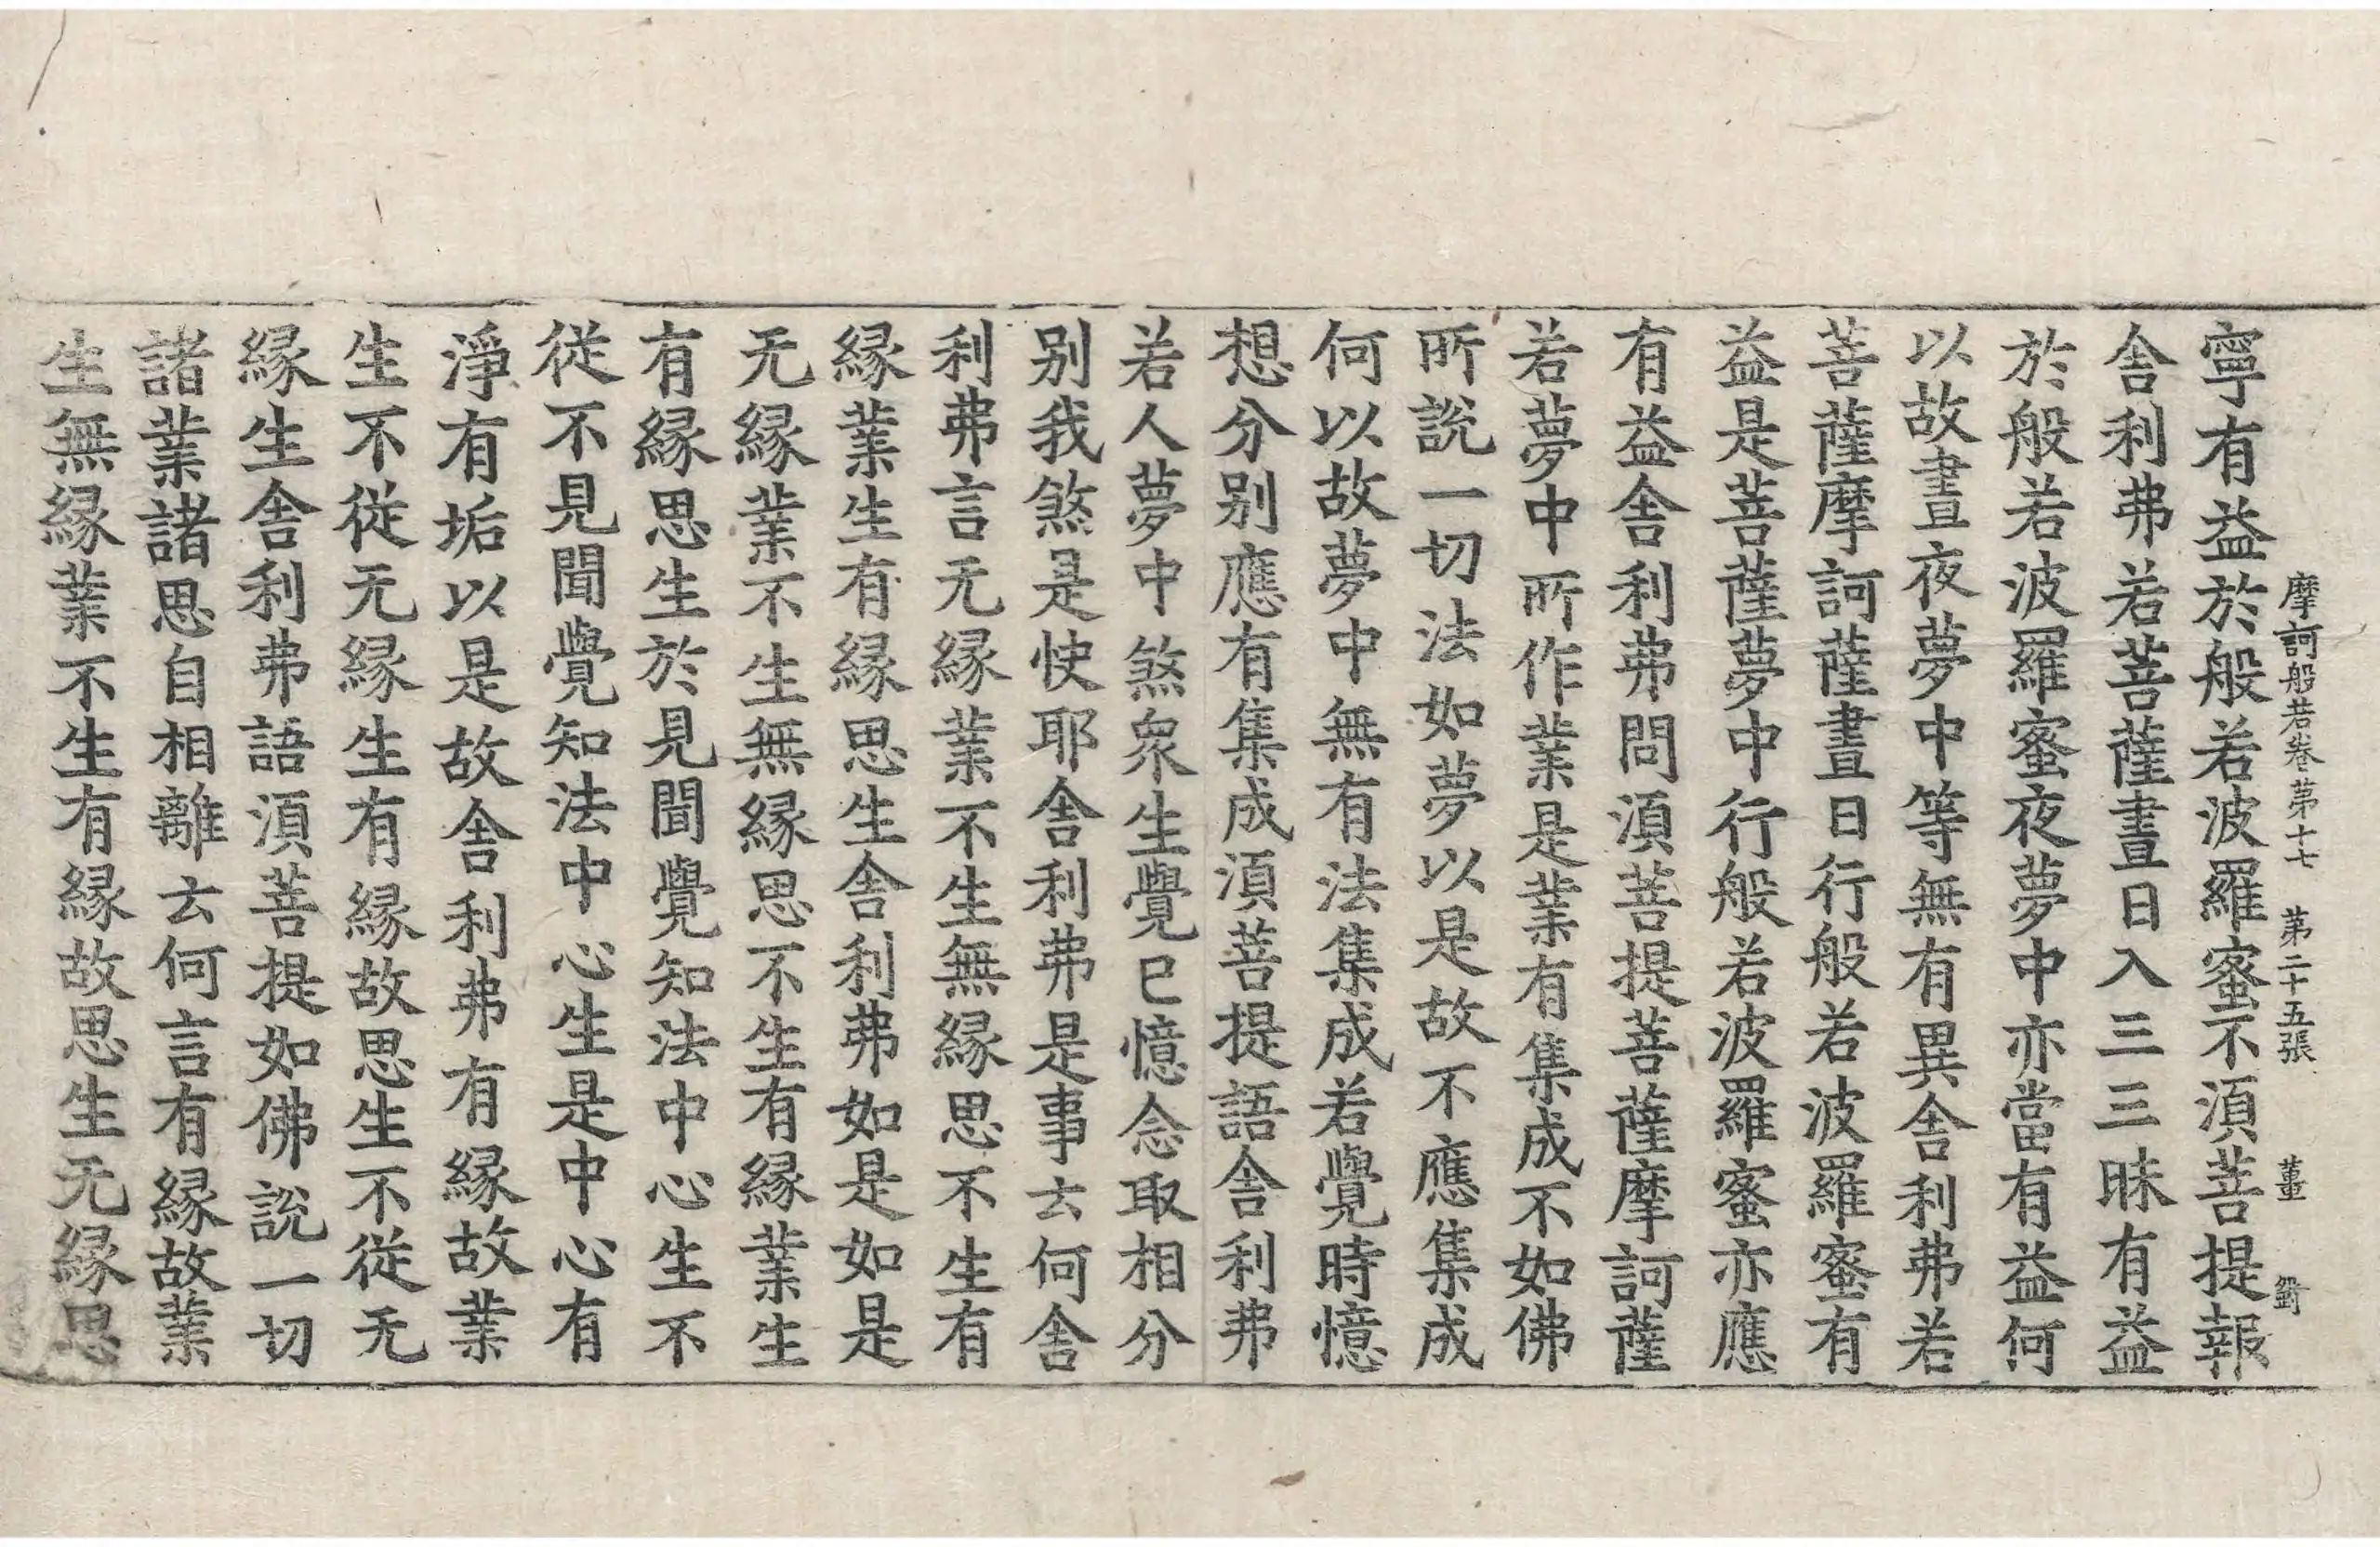 摩訶般若卷第十七 第二十五張 董
寧有益於般若波羅蜜不湏菩提報
舍利弗若菩薩晝日入三三昧有益
於般若波羅蜜夜夢中亦當有益何
以故晝夜夢中等無有異舍利弗若
菩薩摩訶薩晝日行般若波羅蜜有
益是菩薩夢中行般若波羅蜜亦應
有益舍利弗問湏菩提菩薩摩訶薩
若夢中所作業是業有集成不如佛
所說一切法如夢以是故不應集成
何以故夢中無有法集成若覺時憶
想分別應有集成湏菩提語舍利弗
若人夢中煞衆生覺已憶念取相分
別我煞是快耶舍利弗是事云何舍
利弗言无緣業不生無緣思不生有
緣業生有緣思生舍利弗如是如是
无緣業不生無緣思不生有緣業生
有緣思生於見聞覺知法中心生不
從不見聞覺知法中心生是中心有
淨有垢以是故舍利弗有緣故業
生不從无緣生有緣故思生不從无
緣生舍利弗語湏菩提如佛說一切
諸業諸思自相離云何言有緣故業
生無緣業不生有緣故思生无緣思